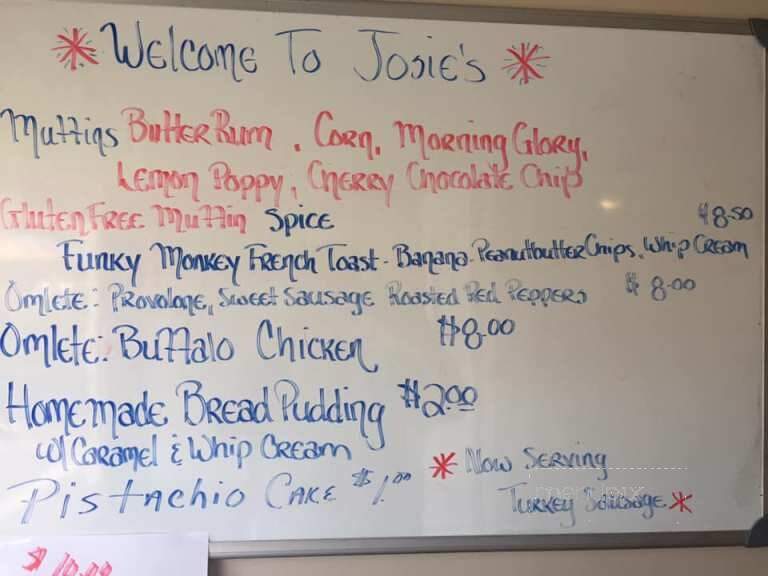 * Welcome To Josie's *
Muffins Butter Rum, Corn, Morning Glory,
Lemon Poppy, Cherry Chocolate Chip
Gluten Free Muffin Spice
$8.50
Funky Monkey French Toast - Banana - Peanutbutter Chips, Whip Cream
Omlete: Provolone, Sweet Sausage Roasted Red Peppers $8.00
Omlete: Buffalo Chicken $8.00
Homemade Bread Pudding $2.00
w/ Caramel & Whip Cream
Pistachio Cake $1.00
* Now Serving
Turkey Sausage *